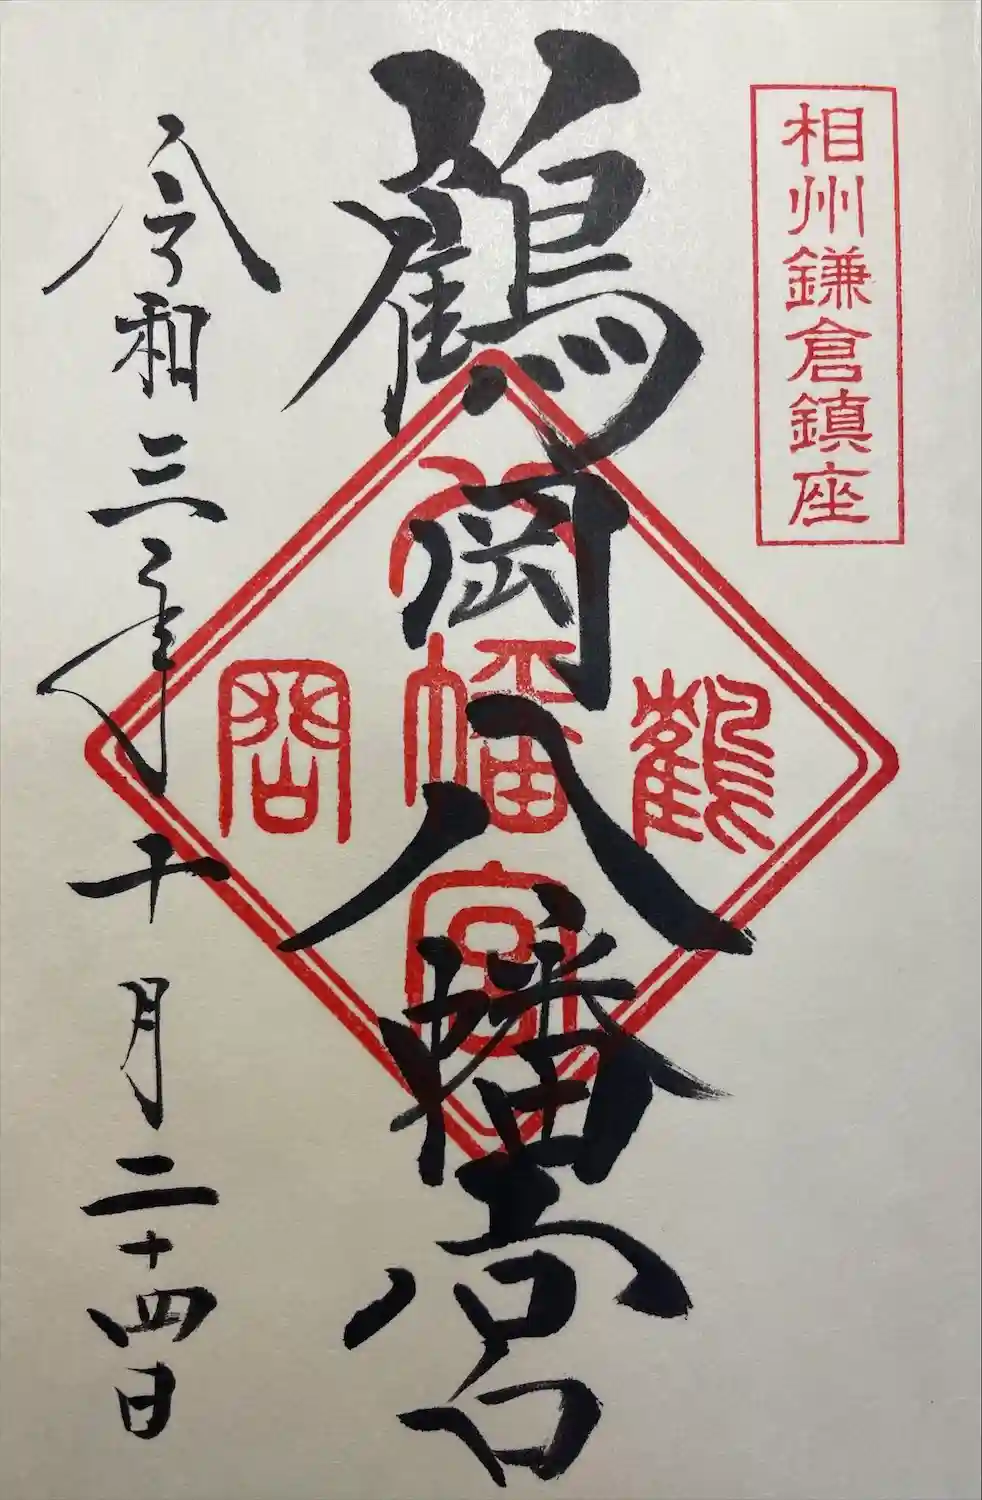 相州鎌倉鎮座
鶴岡八幡宮
鶴
八幡宮
岡
令和三年十月二十四日